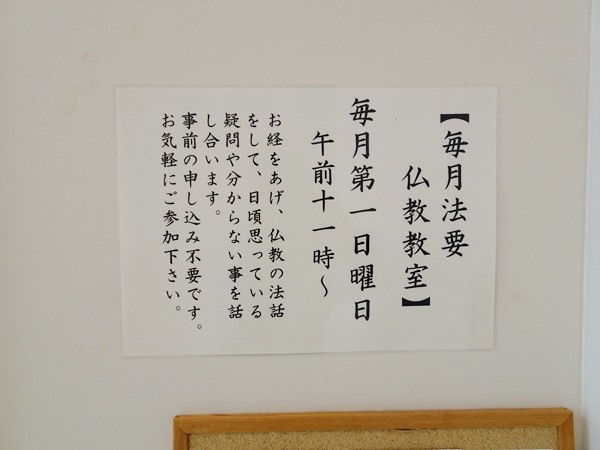 【毎月法要
仏教教室】
毎月第一日曜日
午前十一時～
お経をあげ、仏教の法話
をして、日頃思っている
疑問や分からない事を話
し合います。
事前の申し込み不要です。
お気軽にご参加下さい。